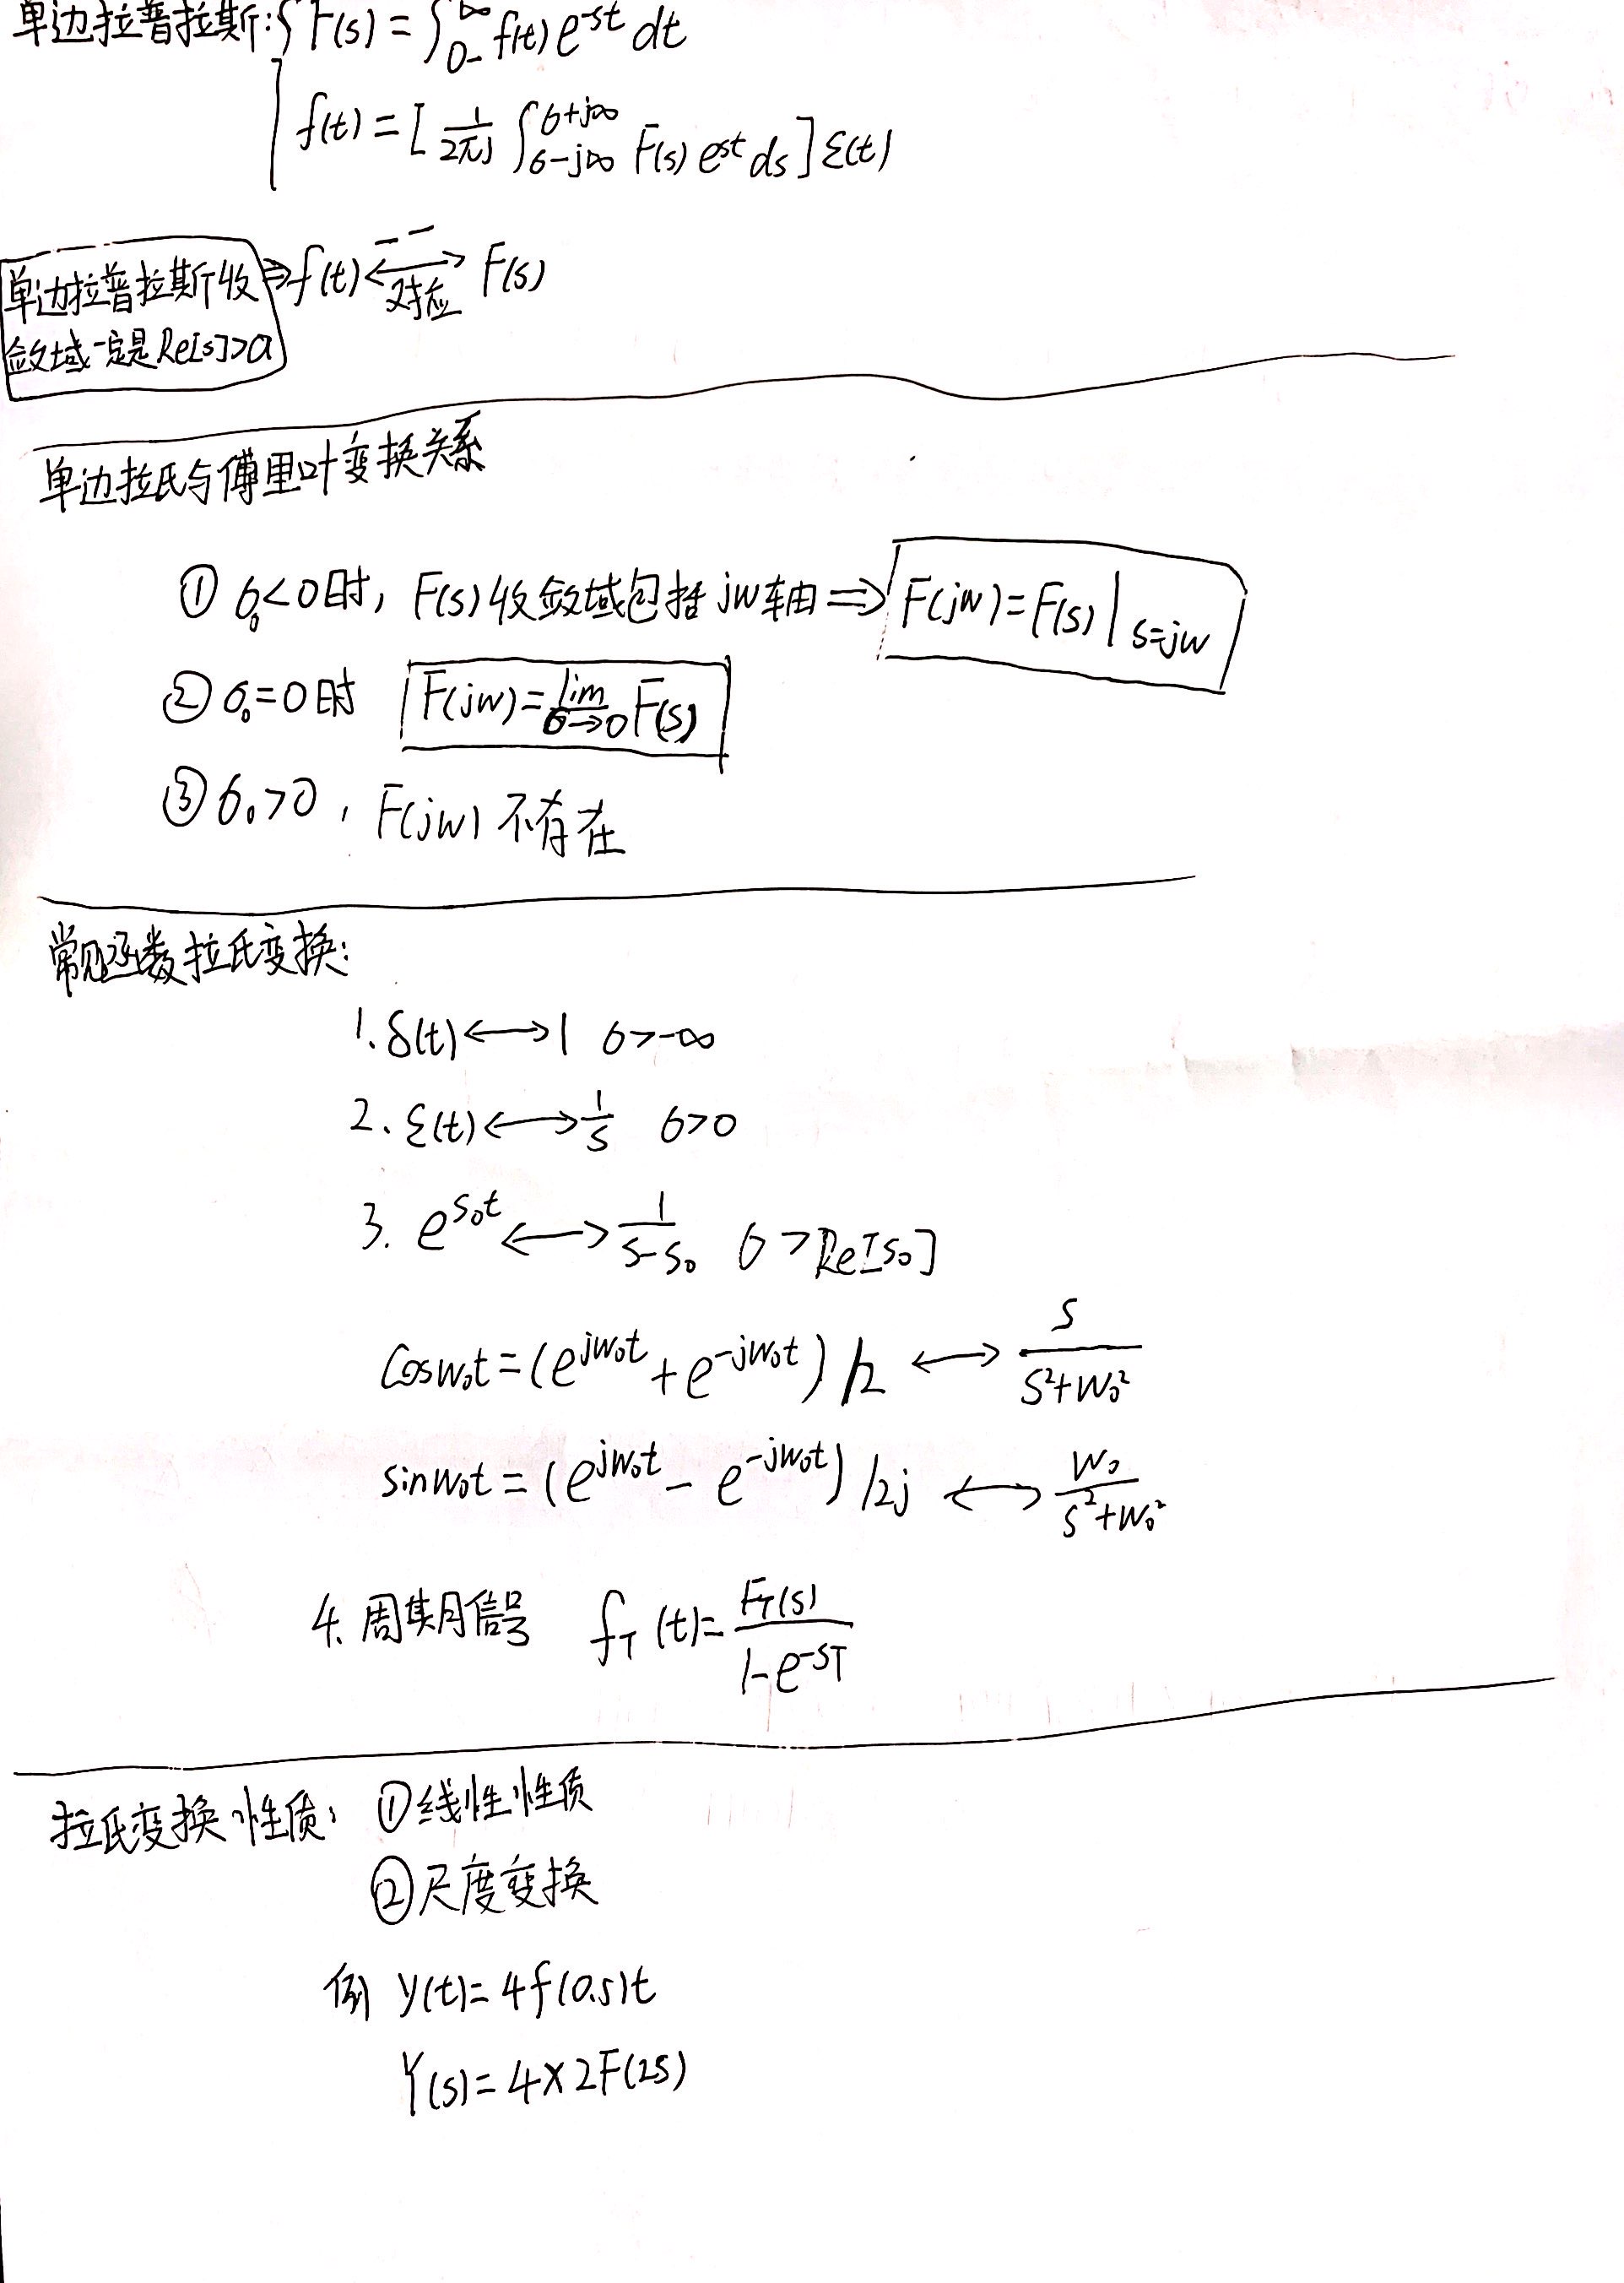 单边拉普拉斯:{ F(s) = ∫₀₋^∞ f(t) e^{-st} dt
f(t) = [ 1/2πj ∫_{σ-j∞}^{σ+j∞} F(s) e^{st} ds ] ε(t)
单边拉普拉斯收敛域一定是Re[s]>α ⇒ f(t) ⟷ F(s)
一一
对应
单边拉氏与傅里叶变换关系
① σ₀<0时, F(s)收敛域包括jw轴 ⇒ F(jw)=F(s)|_{s=jw}
② σ₀=0时 F(jw)=lim_{σ→0} F(s)
③ σ₀>0, F(jw) 不存在
常见函数拉氏变换:
1. δ(t) ⟷ 1 σ>-∞
2. ε(t) ⟷ 1/s σ>0
3. e^{s₀t} ⟷ 1/(s-s₀) σ>Re[s₀]
cosw₀t = (e^{jw₀t} + e^{-jw₀t})/2 ⟷ s/(s²+w₀²)
sinw₀t = (e^{jw₀t} - e^{-jw₀t})/2j ⟷ w₀/(s²+w₀²)
4. 周期信号 f_T(t) = F_T(s)/(1-e^{-sT})
拉氏变换性质: ①线性性质
②尺度变换
例 y(t)=4f(0.5)t
Y(s)=4×2F(2s)